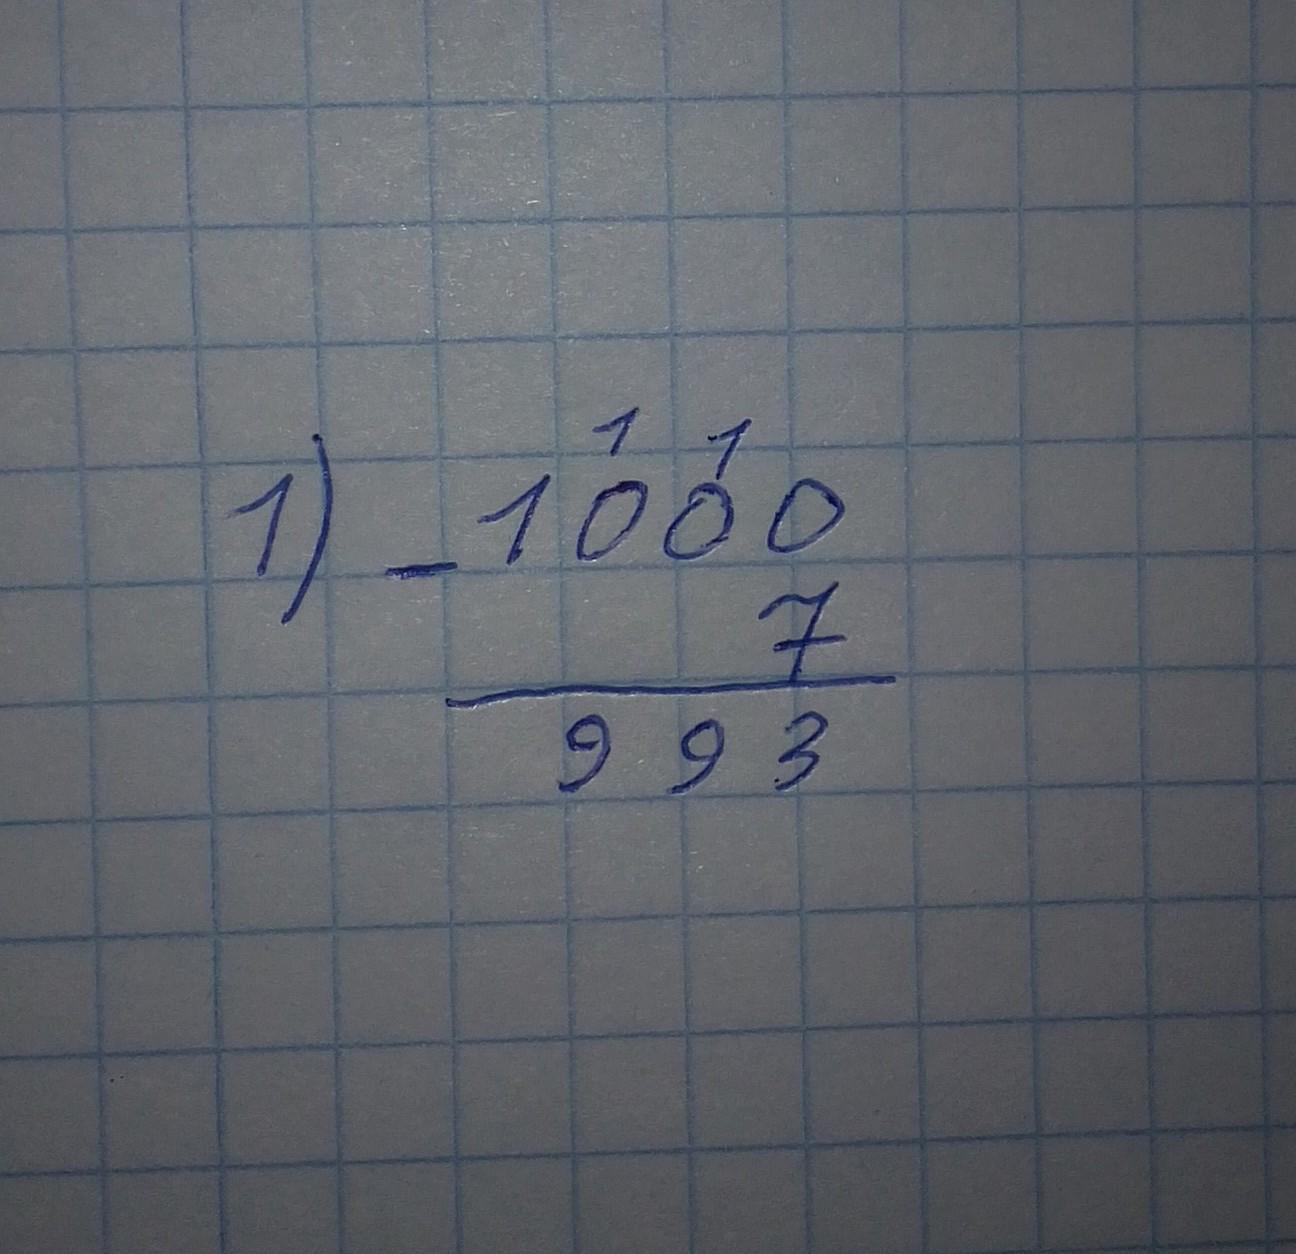 1 1
1) - 1000
7
993